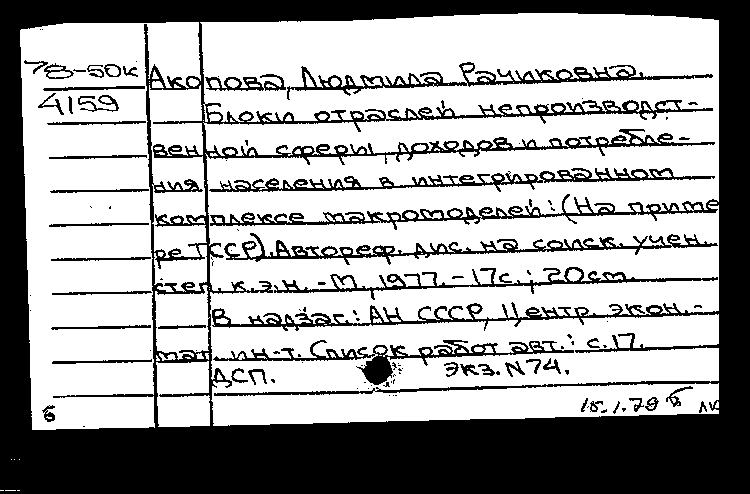 78-50к Акопова, Людмила Рачиковна.
4159 Блоки отраслей непроизводст-
венной сферы, доходов и потребле-
ния населения в интегрированном
комплексе макромоделей: (На приме
ре ТССР). Автореф. дис. на соиск. учен.
степ. к.э.н. - М., 1977. - 17с.; 20см.
В надзаг.: АН СССР, Центр. экон.-
мат. ин-т. Список работ авт.: с.17.
ДСП. Экз. N 74.
б 15.1.79